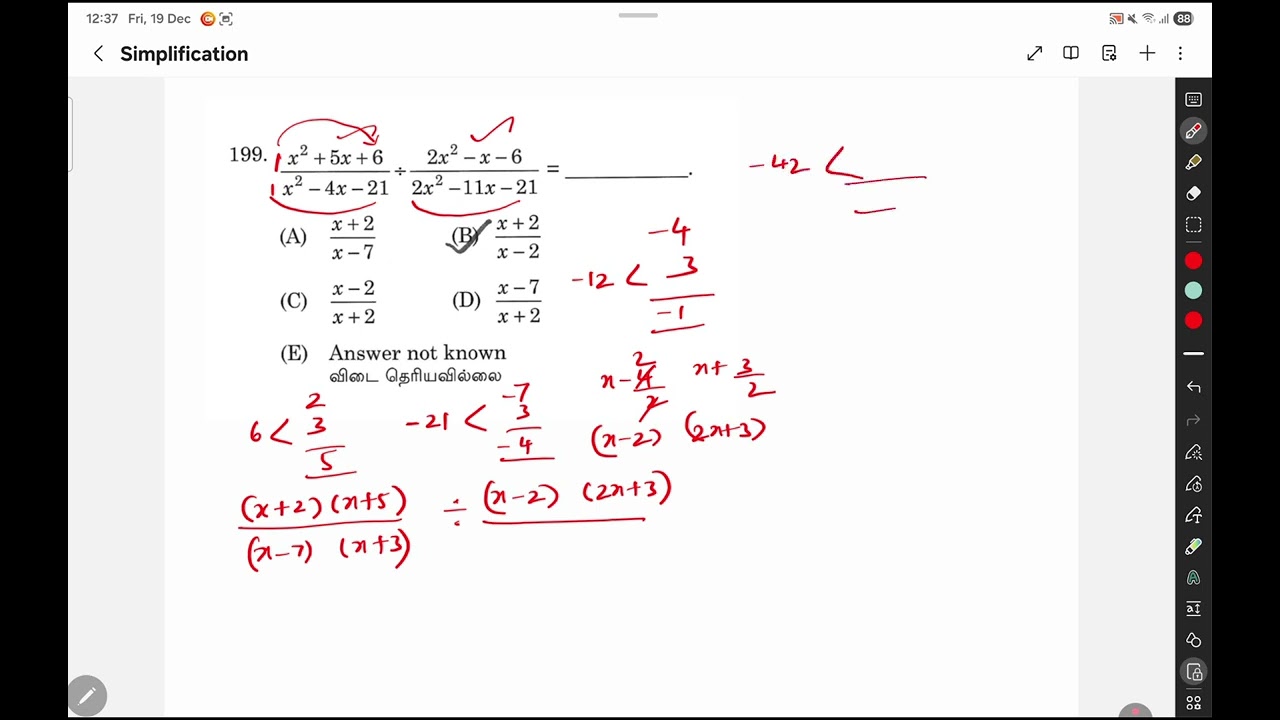 12:37 Fri, 19 Dec
88
Simplification
199. x² + 5x + 6 / x² − 4x − 21 ÷ 2x² − x − 6 / 2x² − 11x − 21 = ________.
(A) x + 2 / x − 7 (B) x + 2 / x − 2
(C) x − 2 / x + 2 (D) x − 7 / x + 2
(E) Answer not known
விடை தெரியவில்லை
1
1
-42 <
-4
-12 < 3
-1
x - 4/2 2 x + 3/2
(x-2) (2x+3)
2
6 < 3
5
-7
-21 < 3
-4
(x+2) (x+5) / (x-7) (x+3) ÷ (x-2) (2x+3)